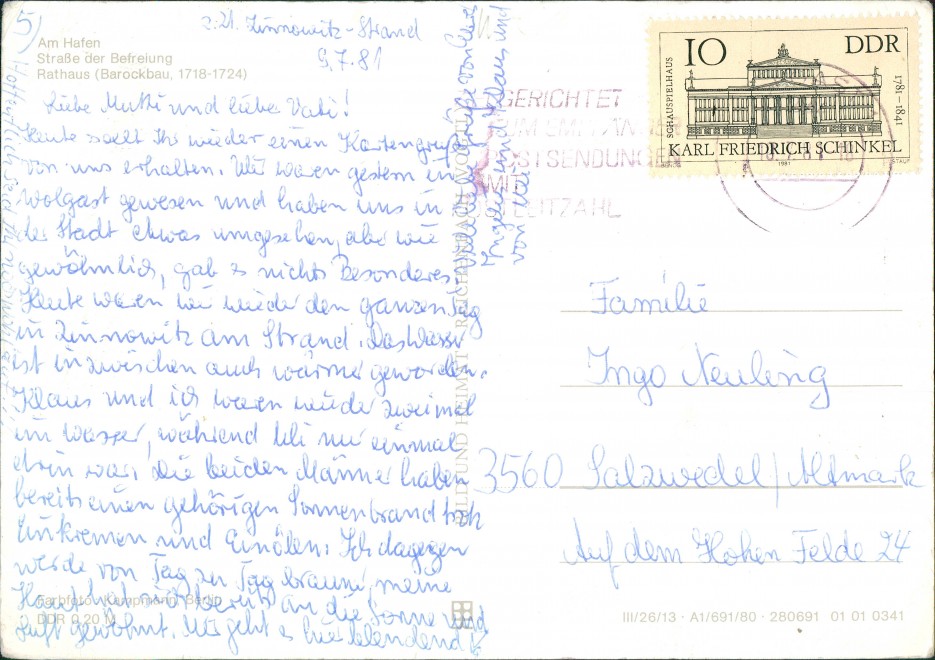 5)
z.Zt. Zinnowitz-Strand
9.7.81
Am Hafen
Straße der Befreiung
Rathaus (Barockbau, 1718-1724)
Liebe Mutti und lieber Vati!
Heute sollt Ihr wieder einen Kartengruß
von uns erhalten. Wir waren gestern in
Wolgast gewesen und haben uns in
der Stadt etwas umgesehen, aber wie
gewöhnlich, gab es nichts Besonderes.
Heute waren wir wieder den ganzen Tag
in Zinnowitz am Strand. Das Wasser
ist inzwischen auch wärmer geworden.
Klaus und ich waren wieder zweimal
im Wasser, während Uli nur einmal
drin war. Die beiden Männer haben
bereits einen gehörigen Sonnenbrand trotz
Einkremen und Einölen. Ich dagegen
werde von Tag zu Tag brauner, meine
Haut hat sich bereits an die Sonne und
Luft gewöhnt. Mir geht es hier blendend
Farbfoto: Kampmann, Berlin
DDR 0,20 M
Hoffentlich seid Ihr
Viele liebe Grüße von Eurer
Angelie und Klaus und
von Uli
BILD UND HEIMAT REICHENBACH (VOGTL)
GERICHTET
ZUM EMPFANGEN
POSTSENDUNGEN
MIT
LEITZAHL
SCHAUSPIELHAUS
10
DDR
1781-1841
KARL FRIEDRICH SCHINKEL
1981
Familie
Ingo Neuling
3560 Salzwedel/Altmark
Auf dem Hohen Felde 24
III/26/13 · A1/691/80 · 280691 01 01 0341